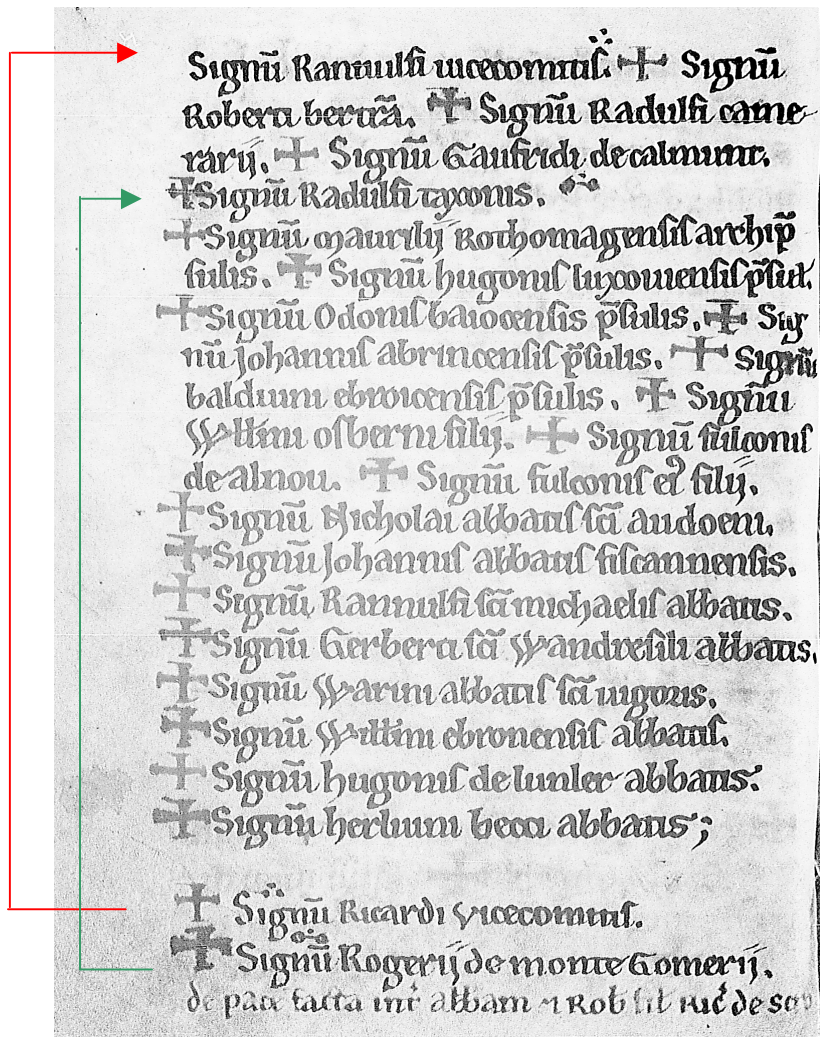 Signū Rannulfi uicecomitis. + Signū
Roberti bertrā. + Signū Radulfi came-
rarij. + Signū Gaufridi de calmunt.
+ Signū Radulfi taxonis.
+ Signū Maurilij Rothomagensis archip̄
sulis. + Signū hugonis luxouiensis p̄sul.
+ Signū Odonis baiocensis p̄sulis. + Sig
nū Johannis abrincensis p̄sulis. + Signū
balduini ebroicensis p̄sulis. + Signū
Willīmi osberni filij. + Signū fulconis
de alnou. + Signū fulconis ei᷒ filij.
+ Signū Nicholai abbatis sc̄i audoeni.
+ Signū Johannis abbatis fiscannensis.
+ Signū Rannulfi sc̄i michaelis abbatis.
+ Signū Gerberti sc̄i Wandresili abbatis.
+ Signū Warini abbatis sc̄i uigoris.
+ Signū Willīmi ebronensis abbatis.
+ Signū hugonis de lunler abbatis.
+ Signū herluini becci abbatis;
+ Signū Ricardi vicecomitis.
+ Signū Rogerij de monte Gomerij.
de pace facta int̄ abbam ⁊ Rob fil Ric de